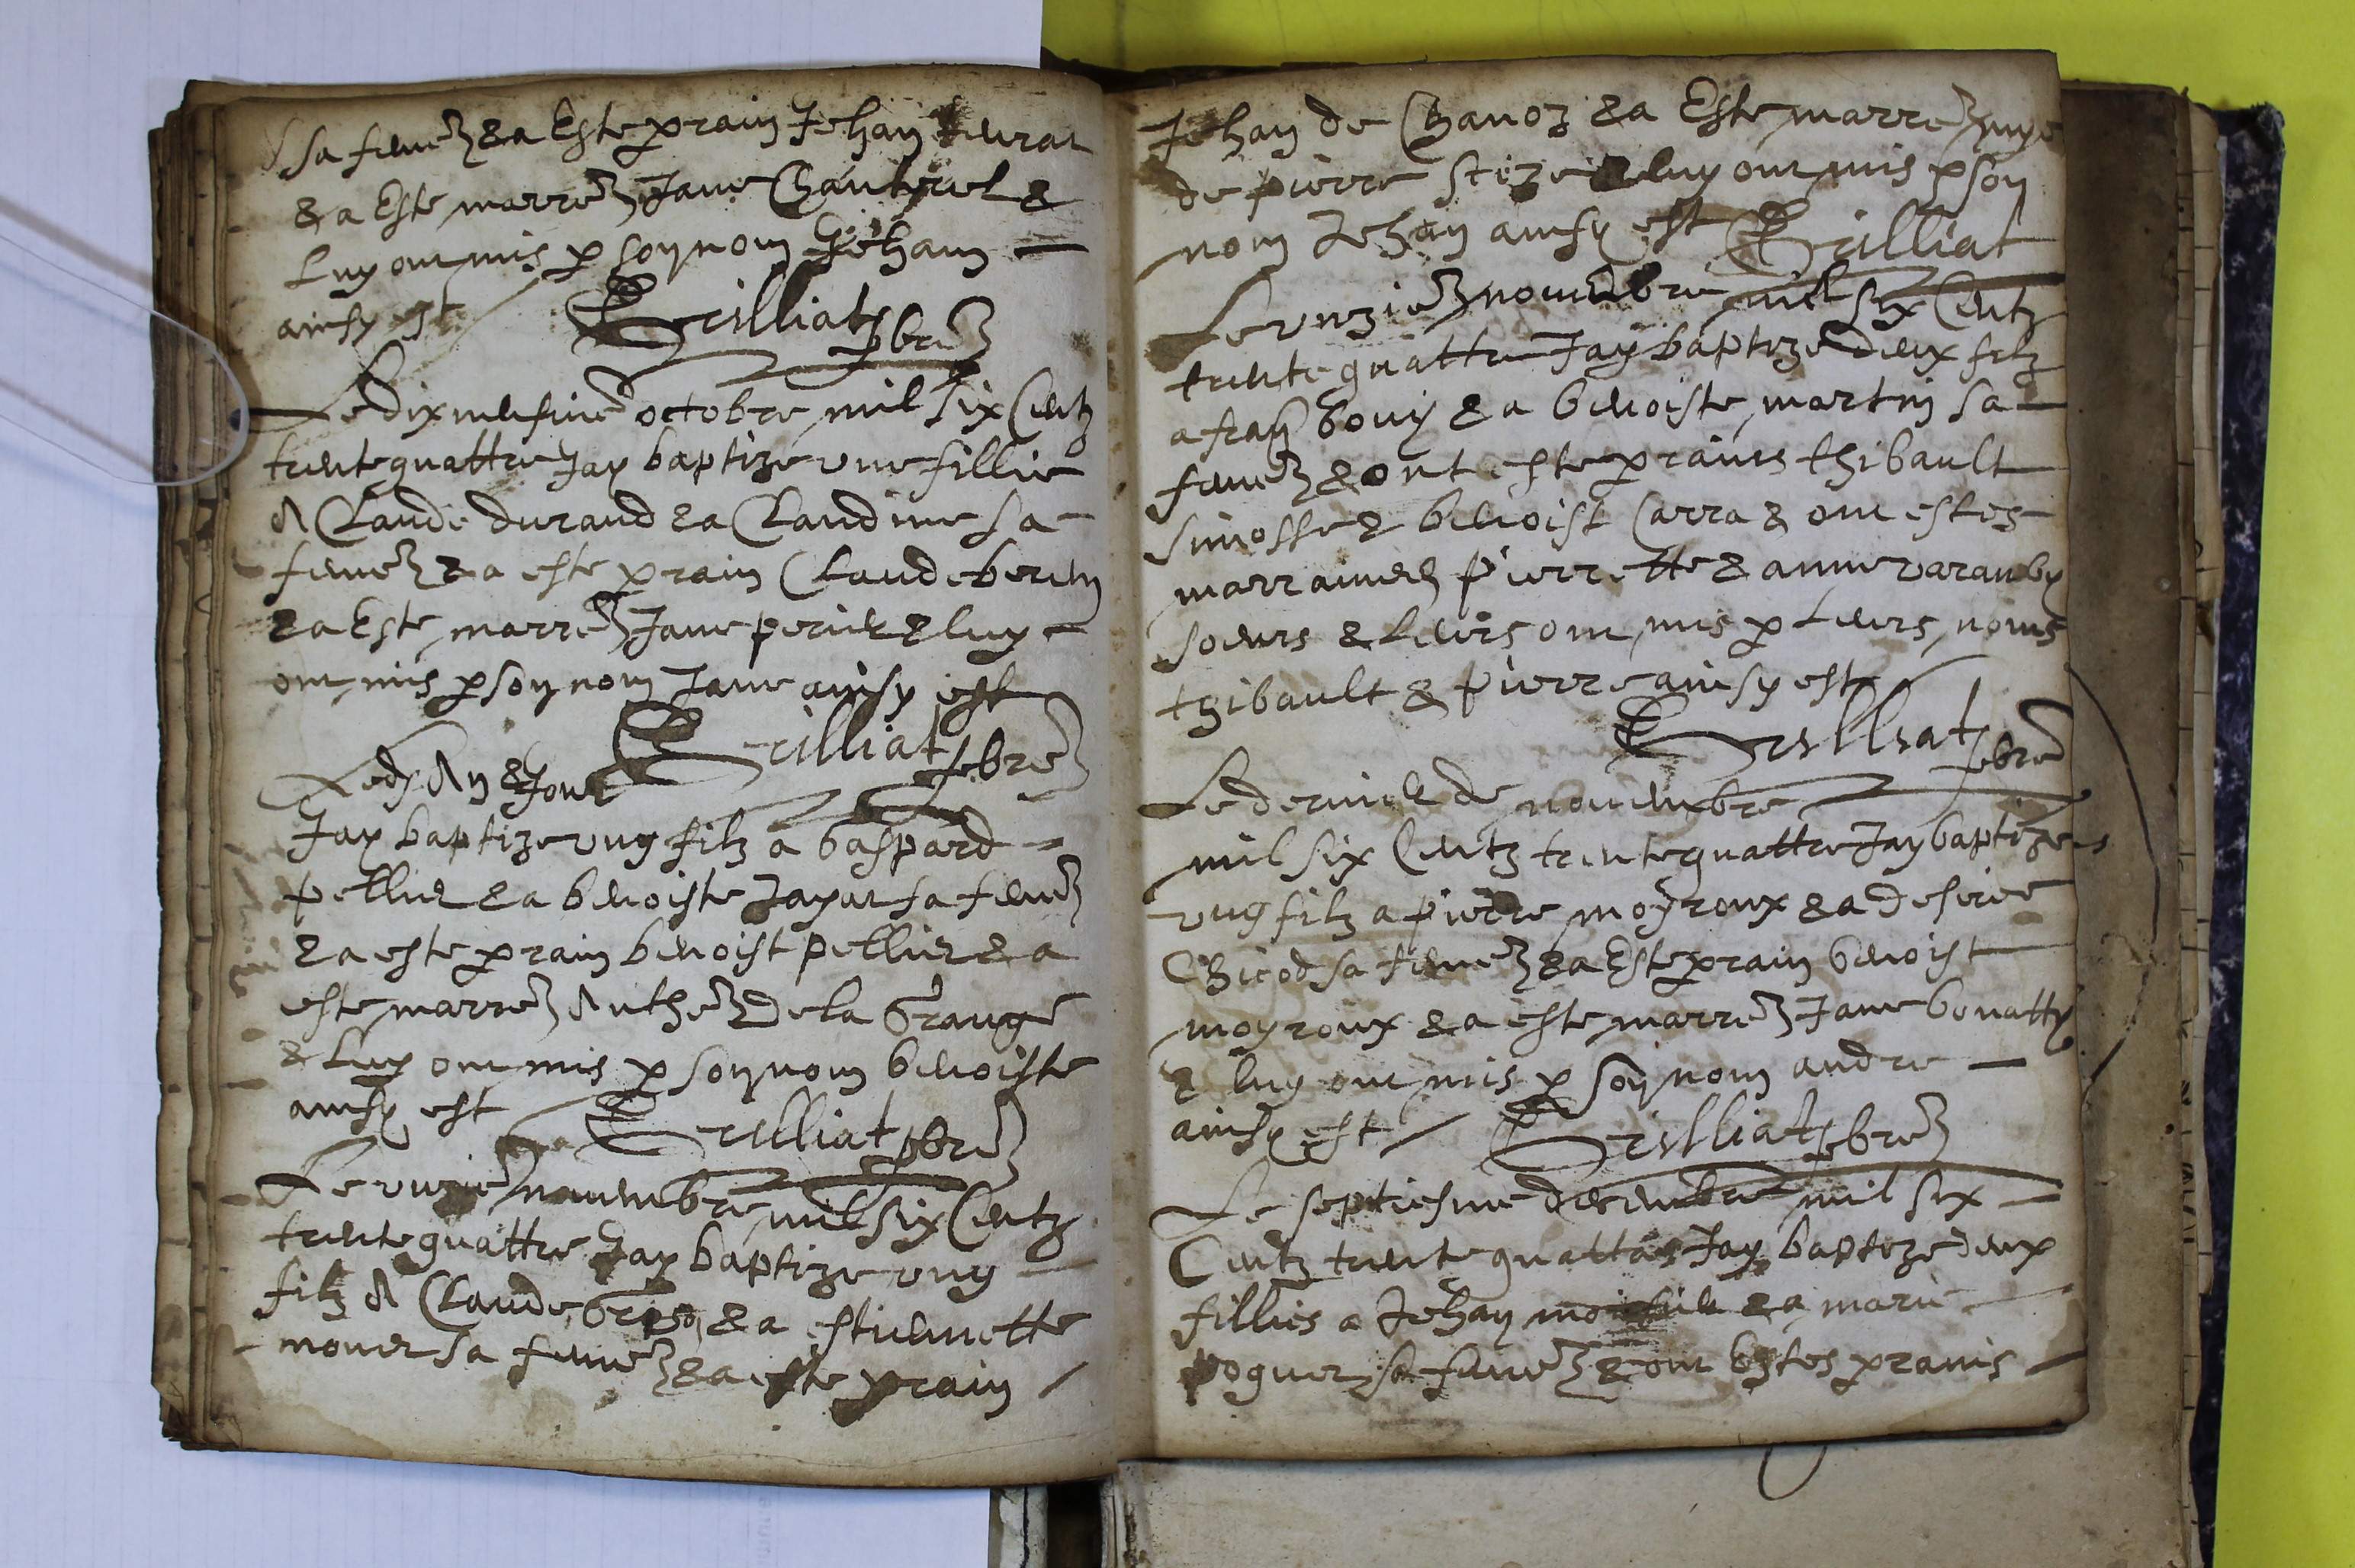 sa femẽ & a Este prain Jehan
& a Este marrẽ Jane Chanterel &
Luy ont mis p son nom Jehann
ainsy est Grilliat pbrẽ
Le dixniesme octobre mil six Centz
trente quattre Jay baptize une fillie
A Claude durand & a Claudine sa
femẽ & a este prain Claude
& a Este marrẽ Jane perier & luy
ont mis p son nom Jane ainsy est
Grilliat pbrẽ
Led An & Jour
Jay baptize ung filz a Gaspard
pellier & a benoiste Jayat sa femẽ
& a este prain benoist pellier & a
este marrẽ Anthẽ de la Grange
& Luy ont mis p son nom benoiste
ainsy est Grilliat pbrẽ
Le unziẽ novembre mil six Centz
trente quattre Jay baptize ung
filz A Claude & a estiennette
sa femẽ & a este prain
Jehan de Chanoz & a Este marrẽ
de pierre & luy ont mis p son
nom Jehan ainsy est Grilliat
Le unziẽ novembre mil six Centz
trente quattre Jay baptize deux filz
a bouy & a benoiste martin sa
femẽ & ont este prains thibault
& benoist Carra & ont estes
marraines pierrette & anne
soeurs & Leurs ont mis p Leurs noms
thibault & pierre ainsy est
Grilliat pbrẽ
Le dernier de novembre
mil six Centz trente quattre Jay baptize
ung filz a pierre moyroux & a desiree
Chicod sa femẽ & a Este prain benoist
moyroux & a este marrẽ Jane
& luy ont mis p son nom andre
ainsy est Grilliat pbrẽ
Le septiesme decembre mil six
Centz trente quattre Jay baptize deux
fillies a Jehan & a marie
poguet sa femẽ & ont Estes prains